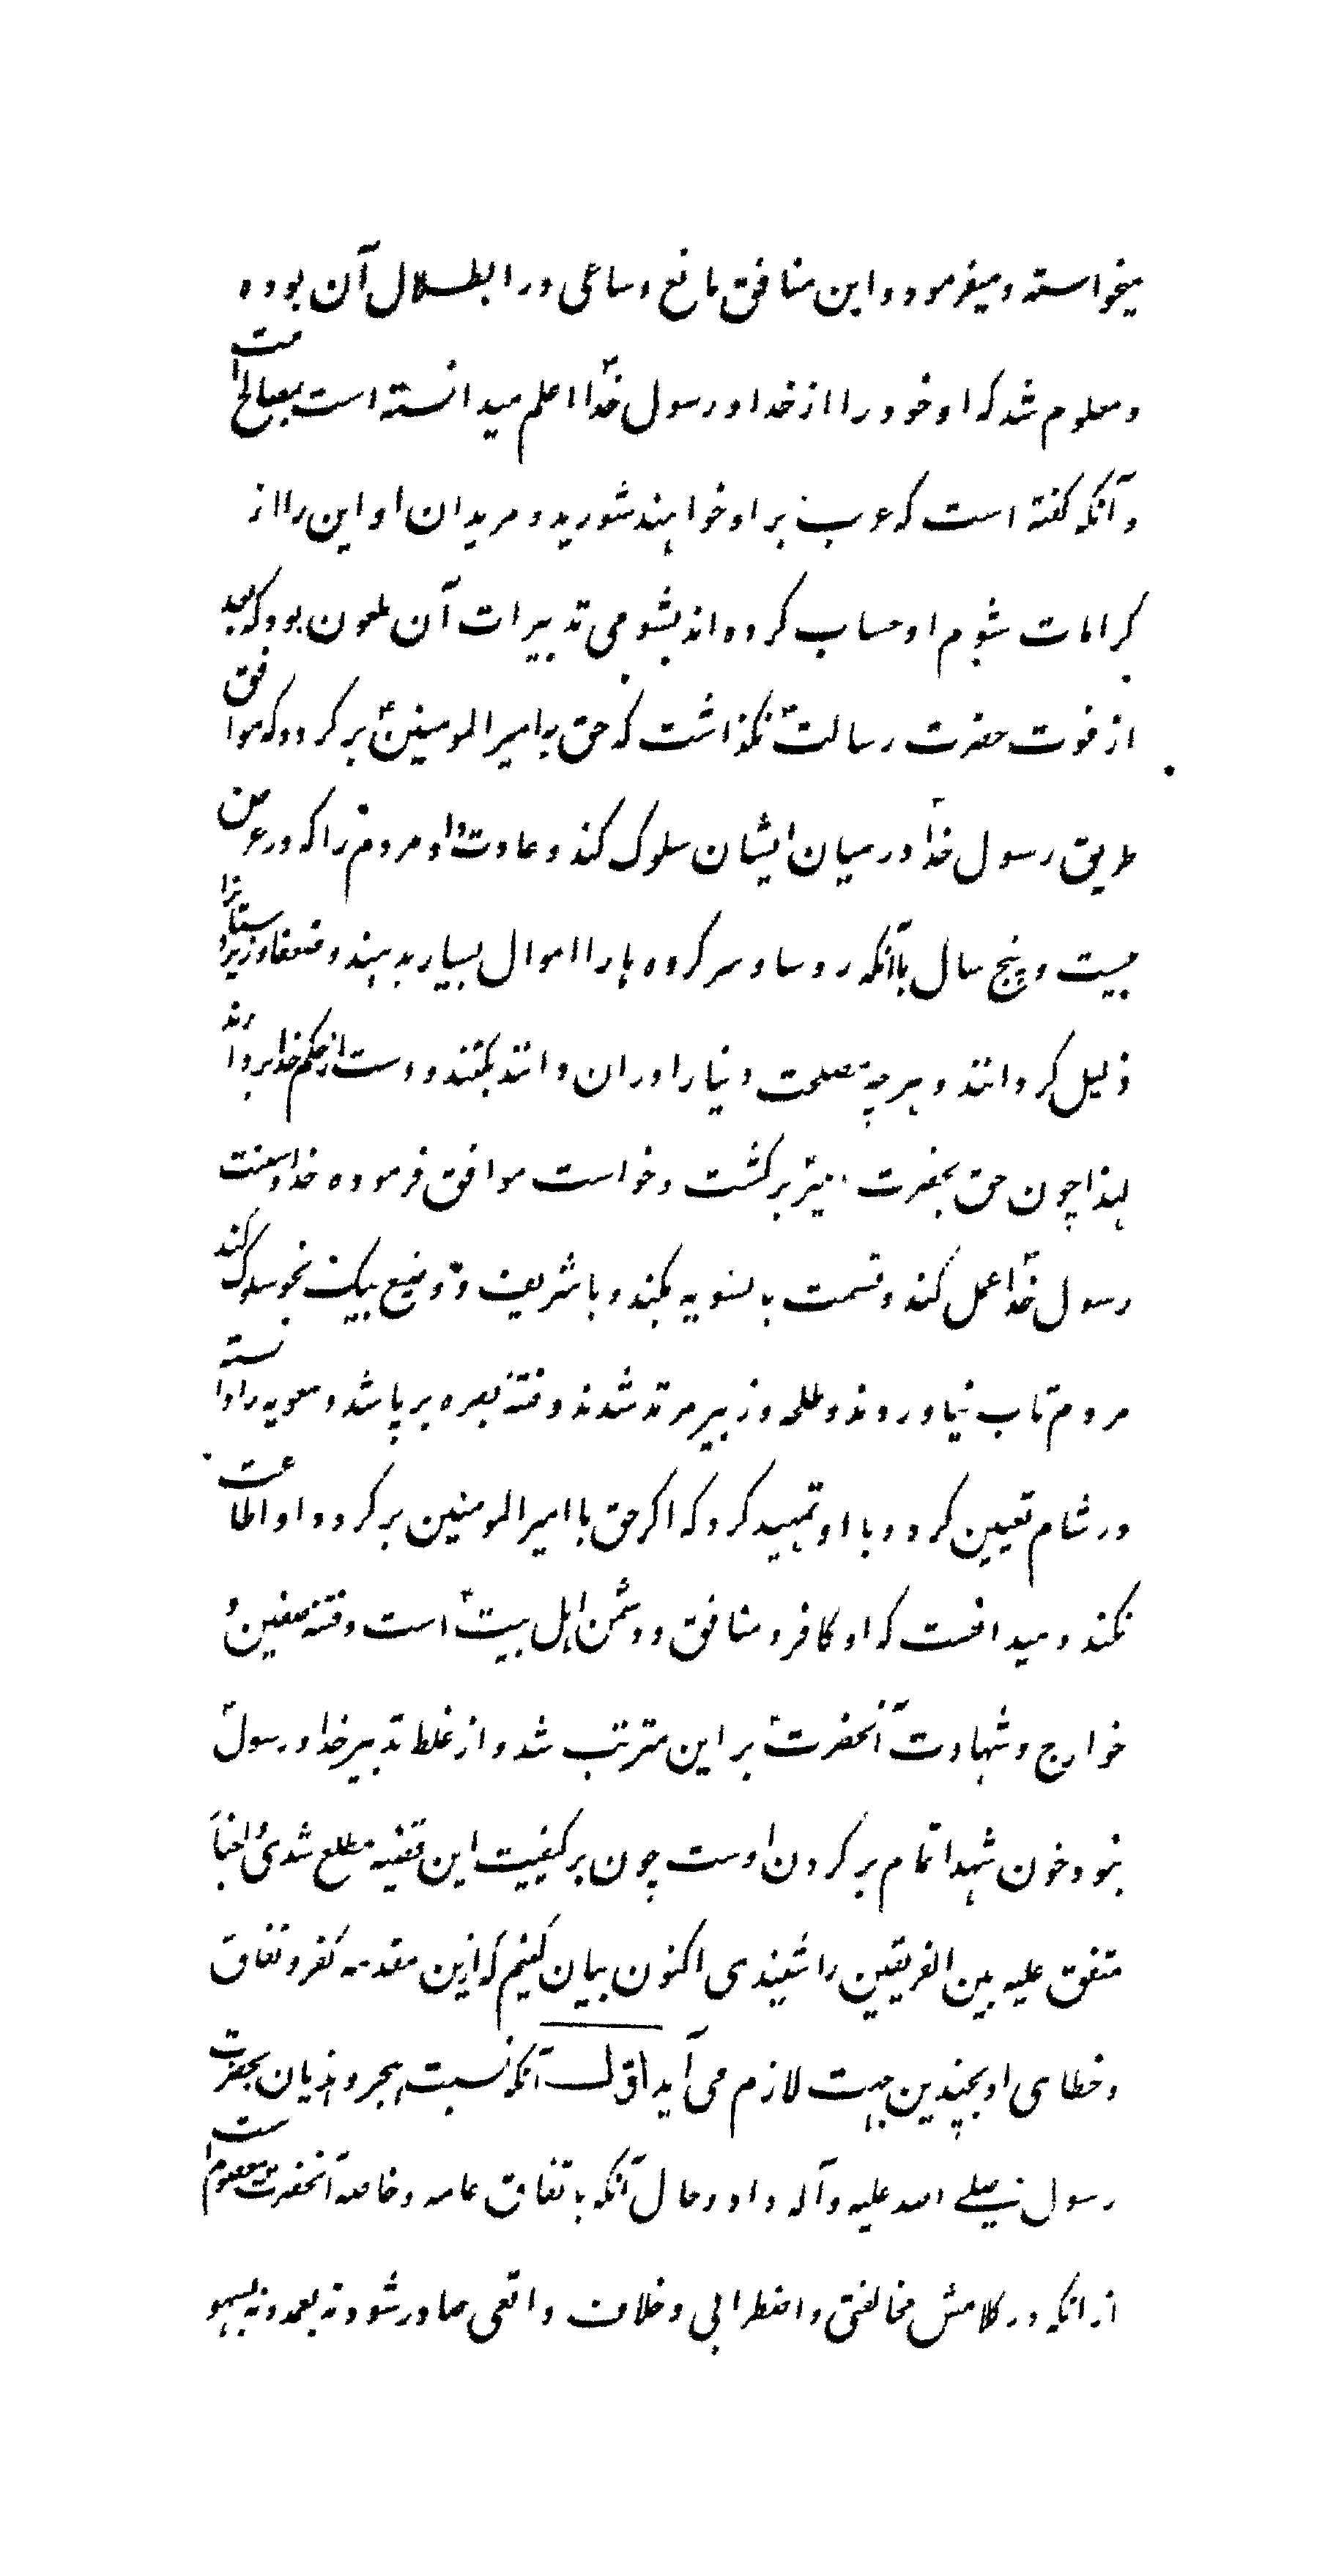 میخواسته و میفرموده و این منافق مانع و ساعی در ابطال آن بوده
و معلوم شد که او خود را از خدا و رسول خدا اعلم میدانسته است بمصالح امت
و آنکه گفته است که عرب بر او خواهند شورید و مریدان او این را از
کرامات شوم او حساب کرده اند بشومی تدبیرات آن ملعون بود که بعد
از فوت حضرت رسالت ص نگذاشت که حق بامیر المومنین ع برگردد که موافق
طریق رسول خدا در میان ایشان سلوک کند و عادت داد مردم را که در عرض
بیست و پنج سال بآنکه روسا و سر کرده ها را اموال بسیار بدهند و ضعفا و زیردستان را
ذلیل گردانند و هر چه مصلحت دنیا را در ان دانند بکنند و دست از حکم خدا بردارند
لهذا چون حق بحضرت امیر برگشت و خواست موافق فرموده خدا و سنت
رسول خدا عمل کند و قسمت بالسویه بکند و با شریف و وضیع بیک نحو سلوک کند
مردم تاب نیاوردند و طلحه و زبیر مرتد شدند و فتنه بصره برپا شد و معویه را دانسته
در شام تعیین کرد و با او تمهید کرد که اگر حق با امیر المومنین برگردد او اطاعت
نکند و میدانست که او کافر و منافق و دشمن اهل بیت ع است و فتنه صفین و
خوارج و شهادت آنحضرت ع بر این مترتب شد و از غلط تدبیر خدا و رسول ص
نبود خون شهدا تمام بر گردن اوست چون بر کیفیت این قضیه مطلع شدی و اخبار
متفق علیه بین الفریقین را شنیدی اکنون بیان کنیم که ازین مقدمه کفر و نفاق
و خطای او بچندین جهت لازم می آید اول آنکه نسبت هجر و هذیان بحضرت
رسول صلی الله علیه وآله داد و حال آنکه باتفاق عامه و خاصه آنحضرت معصوم است
از انکه در کلامش مخالفتی و اضطرابی و خلاف واقعی صادر شود نه بعمد و نه بسهو